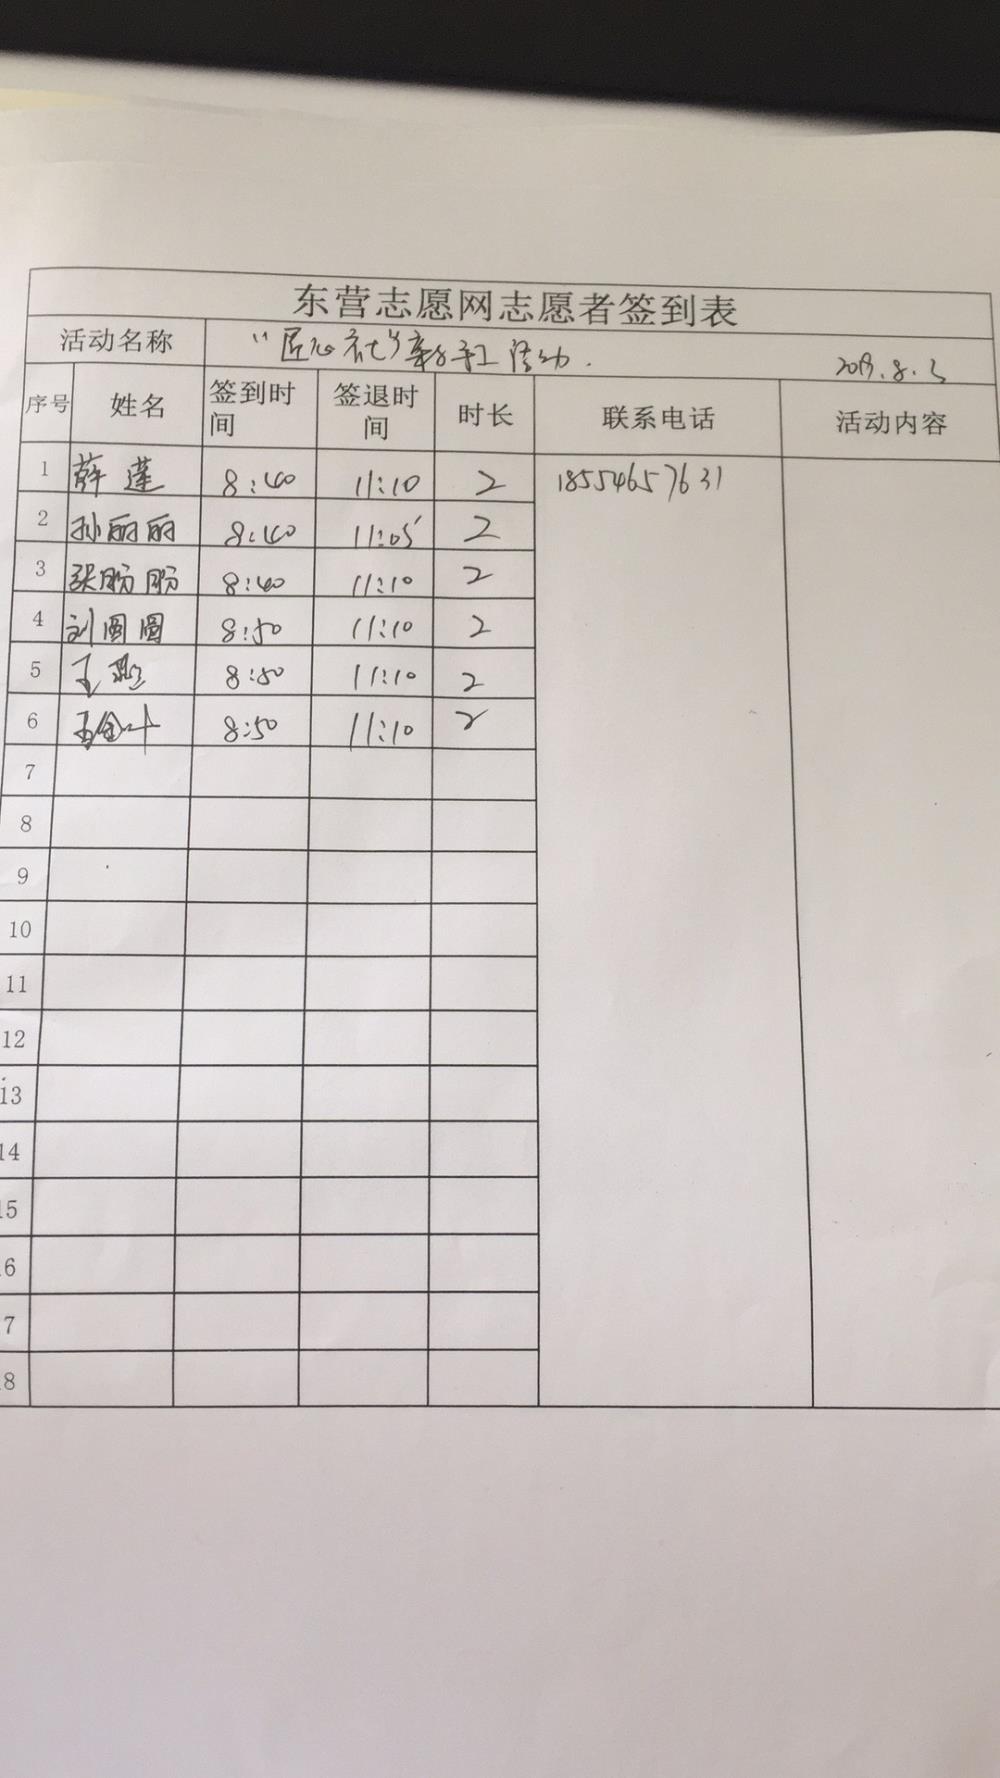 东营志愿网志愿者签到表
活动名称 "匠心社"亲子手工活动. 2019.8.3
序号 姓名 签到时间 签退时间 时长 联系电话 活动内容
1 薛莲 8:40 11:10 2 18554657631
2 孙丽丽 8:40 11:05 2
3 张盼盼 8:40 11:10 2
4 刘圆圆 8:50 11:10 2
5 王 8:50 11:10 2
6 8:50 11:10 2
7
8
9
10
11
12
13
14
15
16
17
18